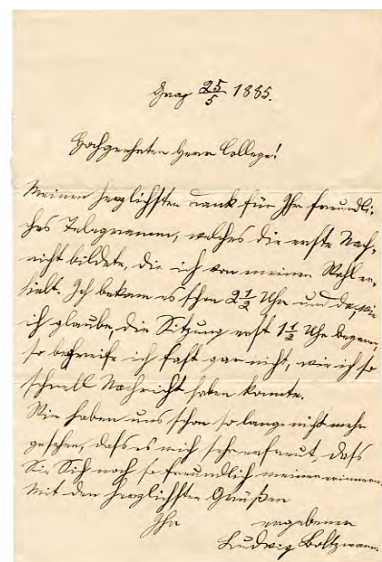 Graz 25/5 1885.
Hochgeehrter Herr College!
Meinen herzlichsten Dank für Ihr freundli-
ches Telegramm, welches die erste Nach-
richt bildete, die ich von meiner Wahl er-
hielt. Ich bekam es schon 2 1/2 Uhr und da, wie
ich glaube, die Sitzung erst 1 1/2 Uhr begann,
so begreife ich fast gar nicht, wie ich so
schnell Nachricht haben konnte.
Wir haben uns schon so lange nicht mehr
gesehen, dass es mich sehr erfreut, dass
Sie Sich noch so freundlich meiner erinnern.
Mit den herzlichsten Grüßen
Ihr ergebener
Ludwig Boltzmann.